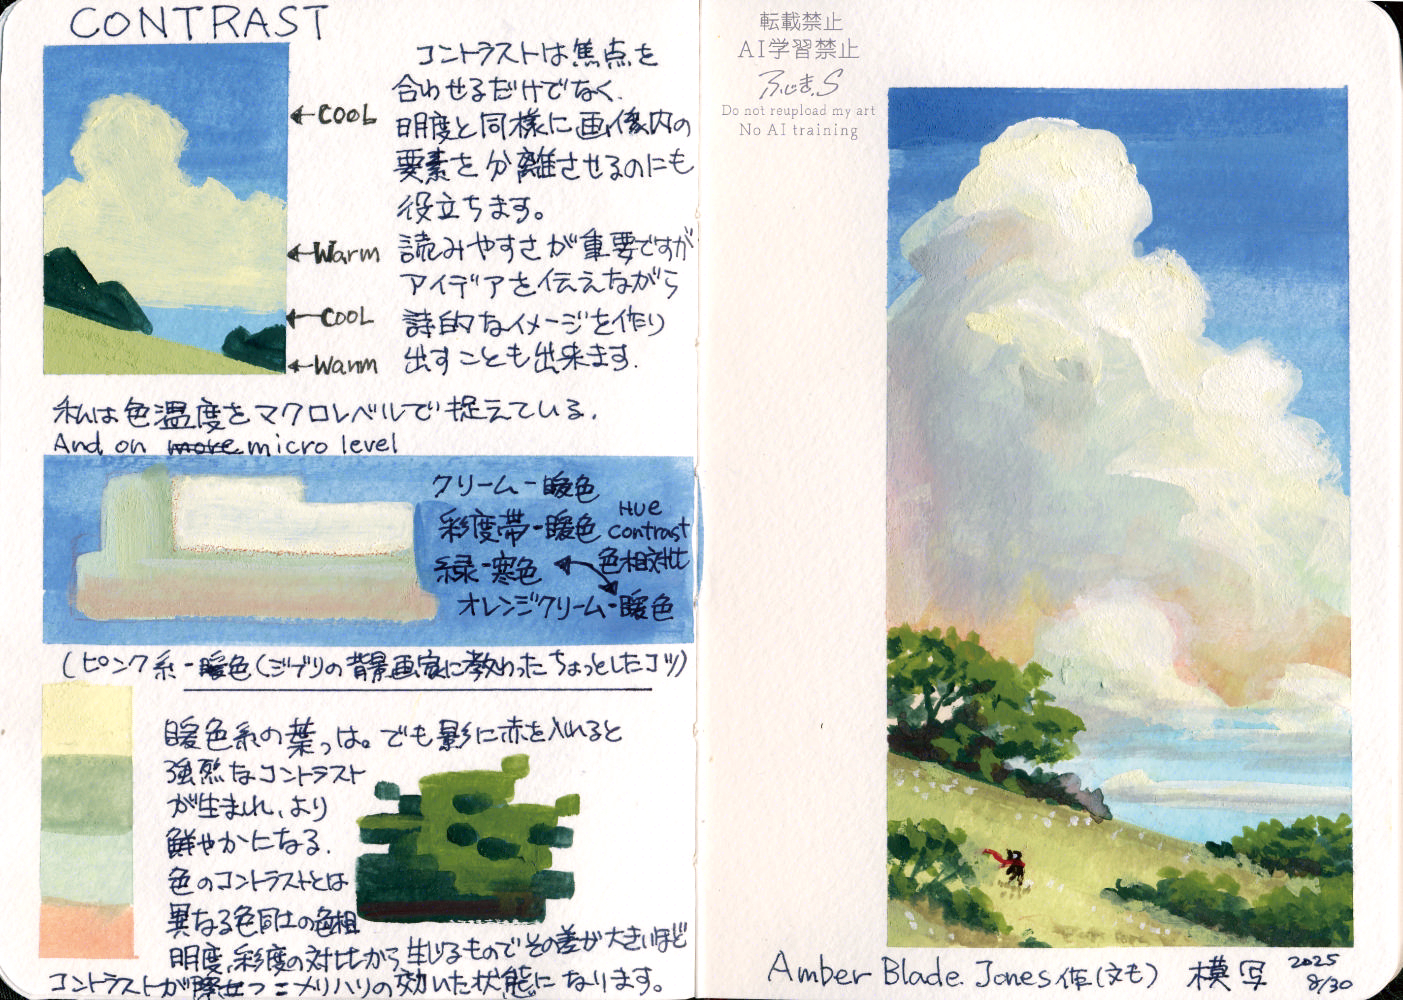 CONTRAST
コントラストは焦点を
合わせるだけでなく、
明度と同様に画像内の
要素を分離させるのにも
役立ちます。
読みやすさが重要ですが
アイデアを伝えながら
詩的なイメージを作り
出すことも出来ます.
←COOL
←Warm
←COOL
←Warm
私は色温度をマクロレベルで捉えている.
And on more micro level
クリーム-暖色
彩度帯-暖色
緑-寒色
オレンジクリーム-暖色
HUE
contrast
色相対比
(ピンク系-暖色(ジブリの背景画家に教わったちょっとしたコツ)
暖色系の葉っは。でも影に赤を入れると
強烈なコントラスト
が生まれ、より
鮮やかになる.
色のコントラストとは
異なる色同士の色相
明度、彩度の対比から生じるものでその差が大きいほど
コントラストが際立つ=メリハリの効いた状態になります。
転載禁止
AI学習禁止
ふじま.S
Do not reupload my art
No AI training
Amber Blade. Jones作(文も) 模写 2025
8/30